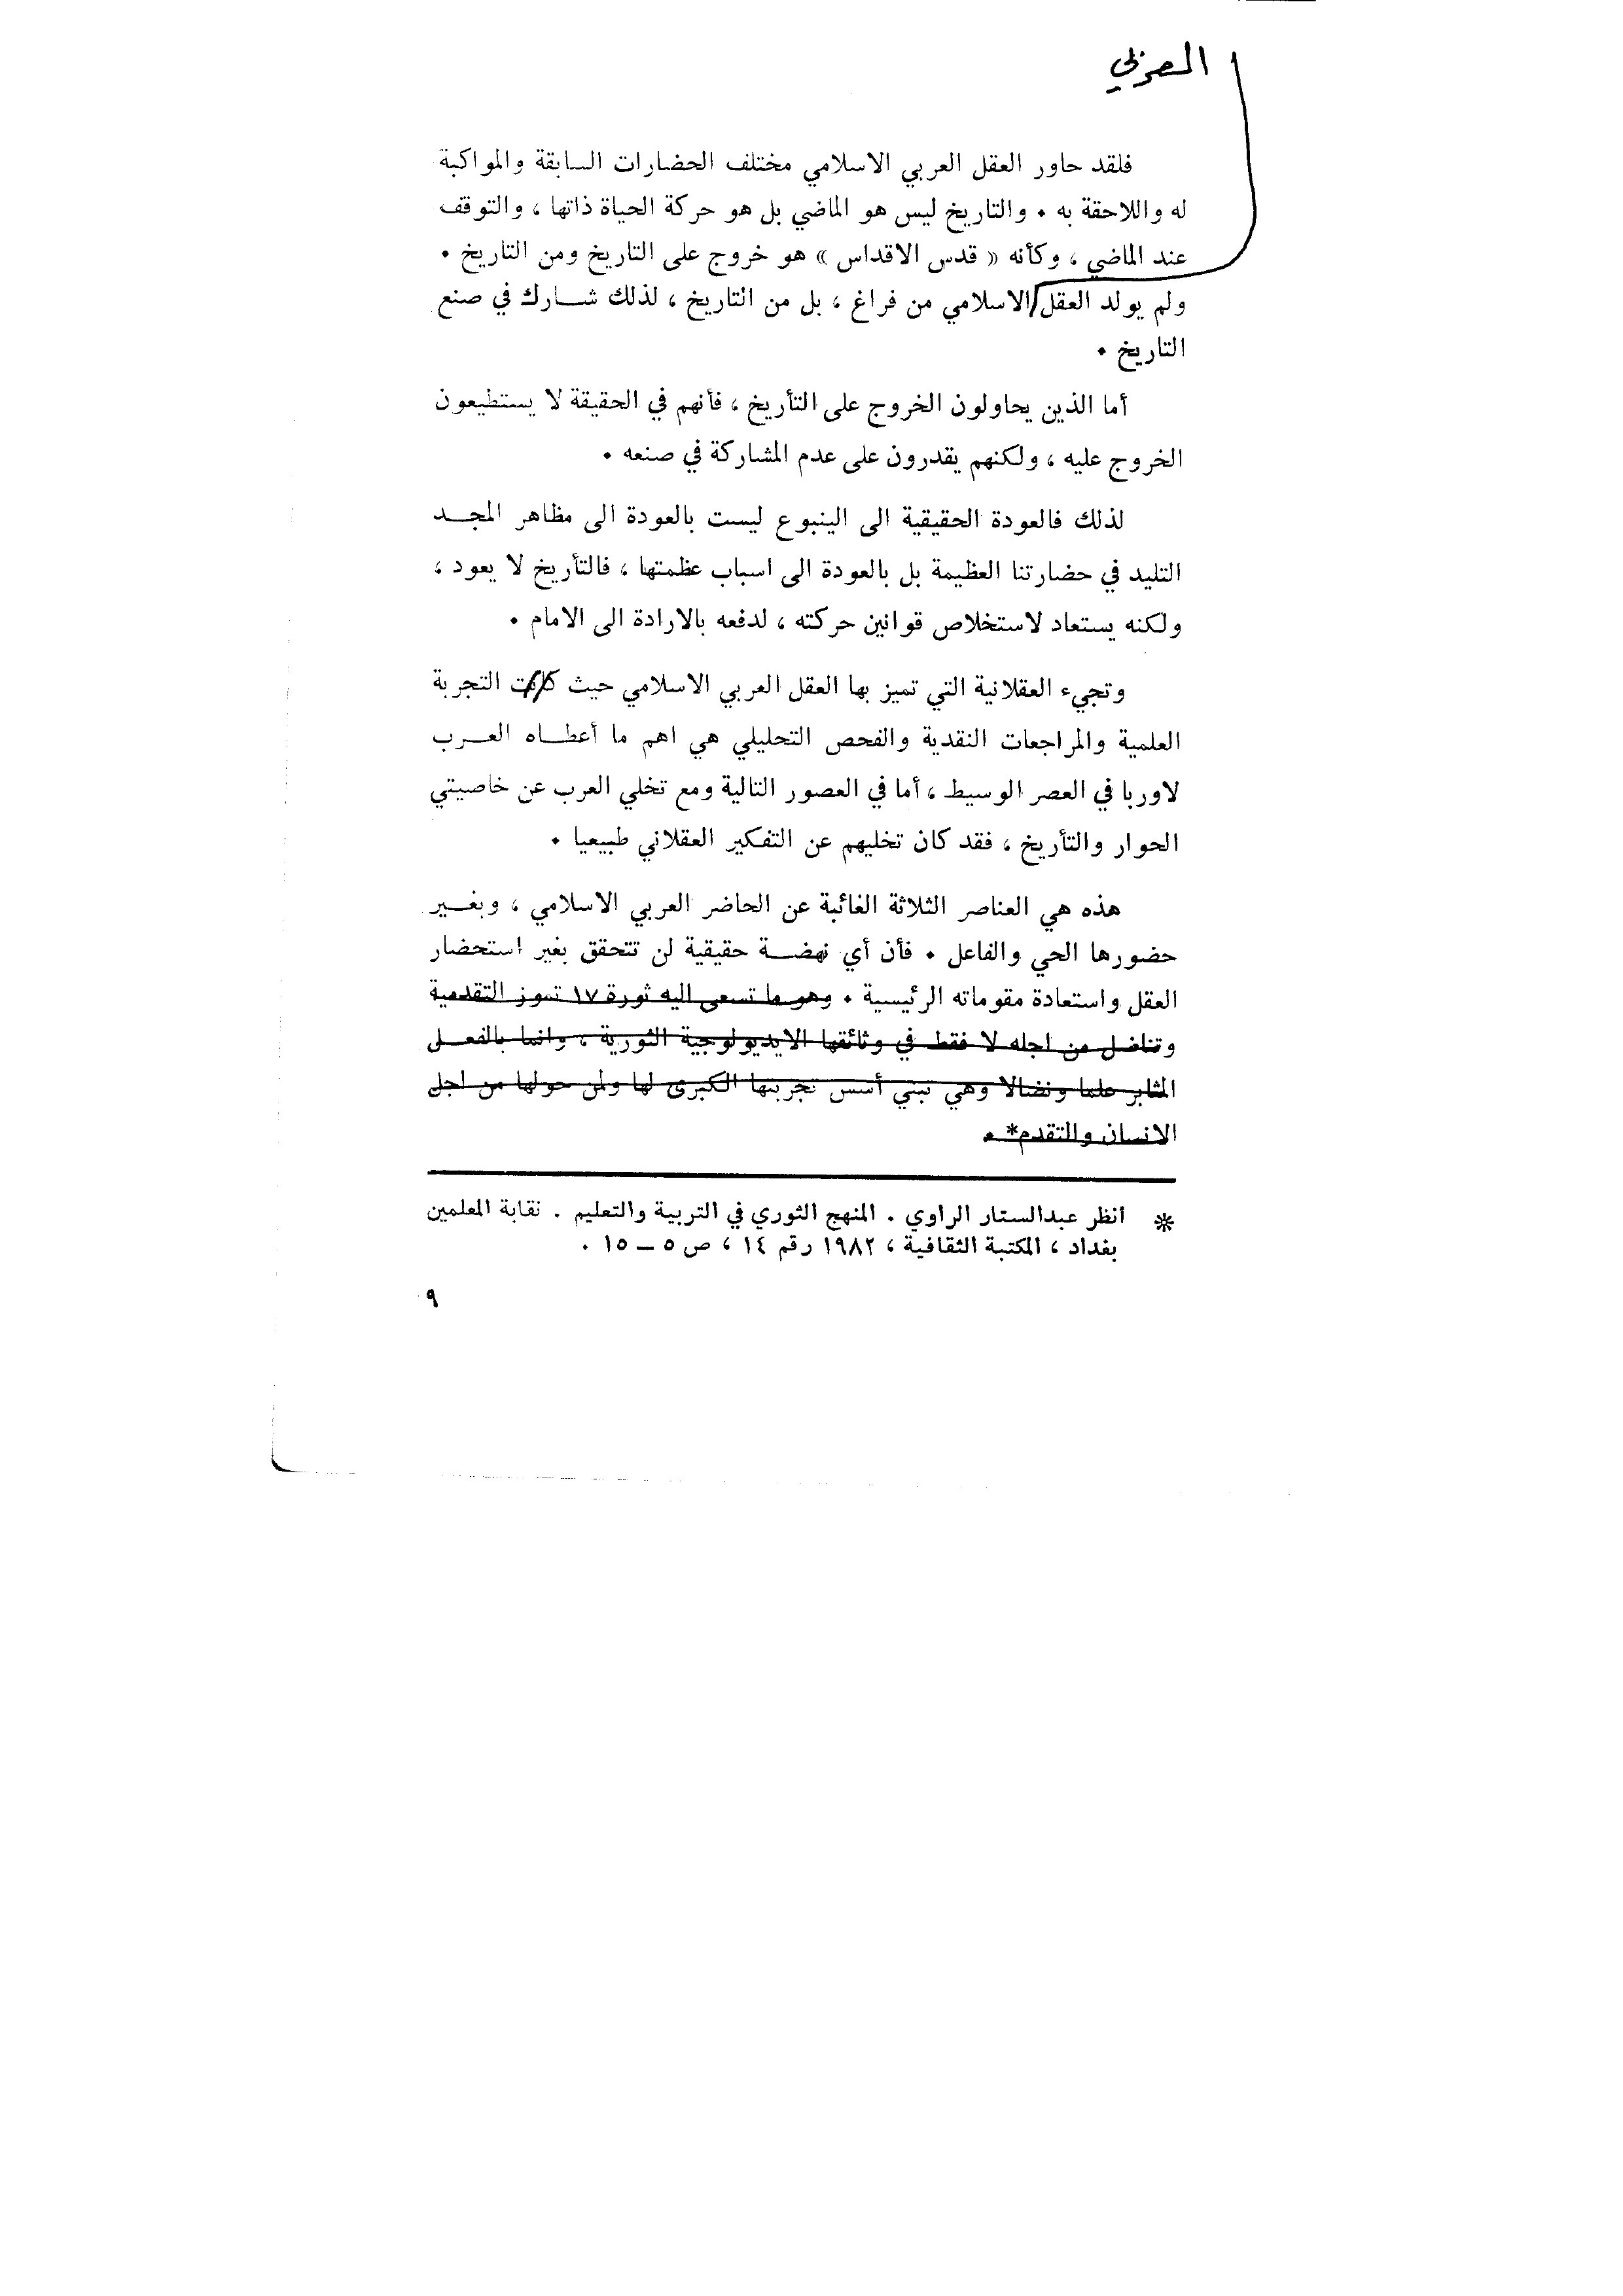 العربي
فلقد حاور العقل العربي الاسلامي مختلف الحضارات السابقة والمواكبة
له واللاحقة به . والتاريخ ليس هو الماضي بل هو حركة الحياة ذاتها ، والتوقف
عند الماضي ، وكأنه « قدس الاقداس » هو خروج على التاريخ ومن التاريخ .
ولم يولد العقل الاسلامي من فراغ ، بل من التاريخ ، لذلك شــارك في صنع
التاريخ .
أما الذين يحاولون الخروج على التأريخ ، فأنهم في الحقيقة لا يستطيعون
الخروج عليه ، ولكنهم يقدرون على عدم المشاركة في صنعه .
لذلك فالعودة الحقيقية الى الينبوع ليست بالعودة الى مظاهر المجــد
التليد في حضارتنا العظيمة بل بالعودة الى اسباب عظمتها ، فالتأريخ لا يعود ،
ولكنه يستعاد لاستخلاص قوانين حركته ، لدفعه بالارادة الى الامام .
وتجيء العقلانية التي تميز بها العقل العربي الاسلامي حيث كانت التجربة
العلمية والمراجعات النقدية والفحص التحليلي هي اهم ما أعطــاه العــرب
لاوربا في العصر الوسيط ، أما في العصور التالية ومع تخلي العرب عن خاصيتي
الحوار والتأريخ ، فقد كان تخليهم عن التفكير العقلاني طبيعيا .
هذه هي العناصر الثلاثة الغائبة عن الحاضر العربي الاسلامي ، وبغــير
حضورها الحي والفاعل . فأن أي نهضــة حقيقية لن تتحقق بغير استحضار
العقل واستعادة مقوماته الرئيسية . وهو ما تسعى اليه ثورة ١٧ تموز التقدمية
وتناضل من اجله لا فقط في وثائقها الايديولوجية الثورية ، وانما بالفعــل
المثابر علما ونضالا وهي تبني أسس تجربتها الكبرى لها ولمن حولها من اجل
الانسان والتقدم* .
* انظر عبدالستار الراوي . المنهج الثوري في التربية والتعليم . نقابة المعلمين
بغداد ، المكتبة الثقافية ، ١٩٨٢ رقم ١٤ ، ص ٥ – ١٥ .
٩